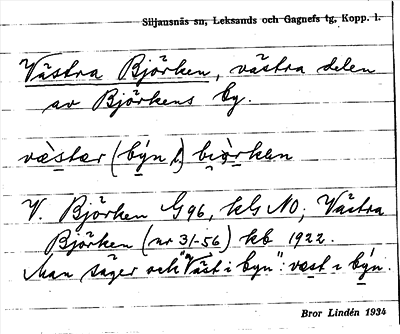 Siljansnäs sn, Leksands och Gagnefs tg, Kopp. l.
Västra Björken, västra delen
av Björkens by.
væstær (býn) biörkän
V. Björken G 96, kls NO, Västra
Björken (nr 31-56) kb 1922.
Man säger och "Väst i byn": væst ı býn.
Bror Lindén 1934